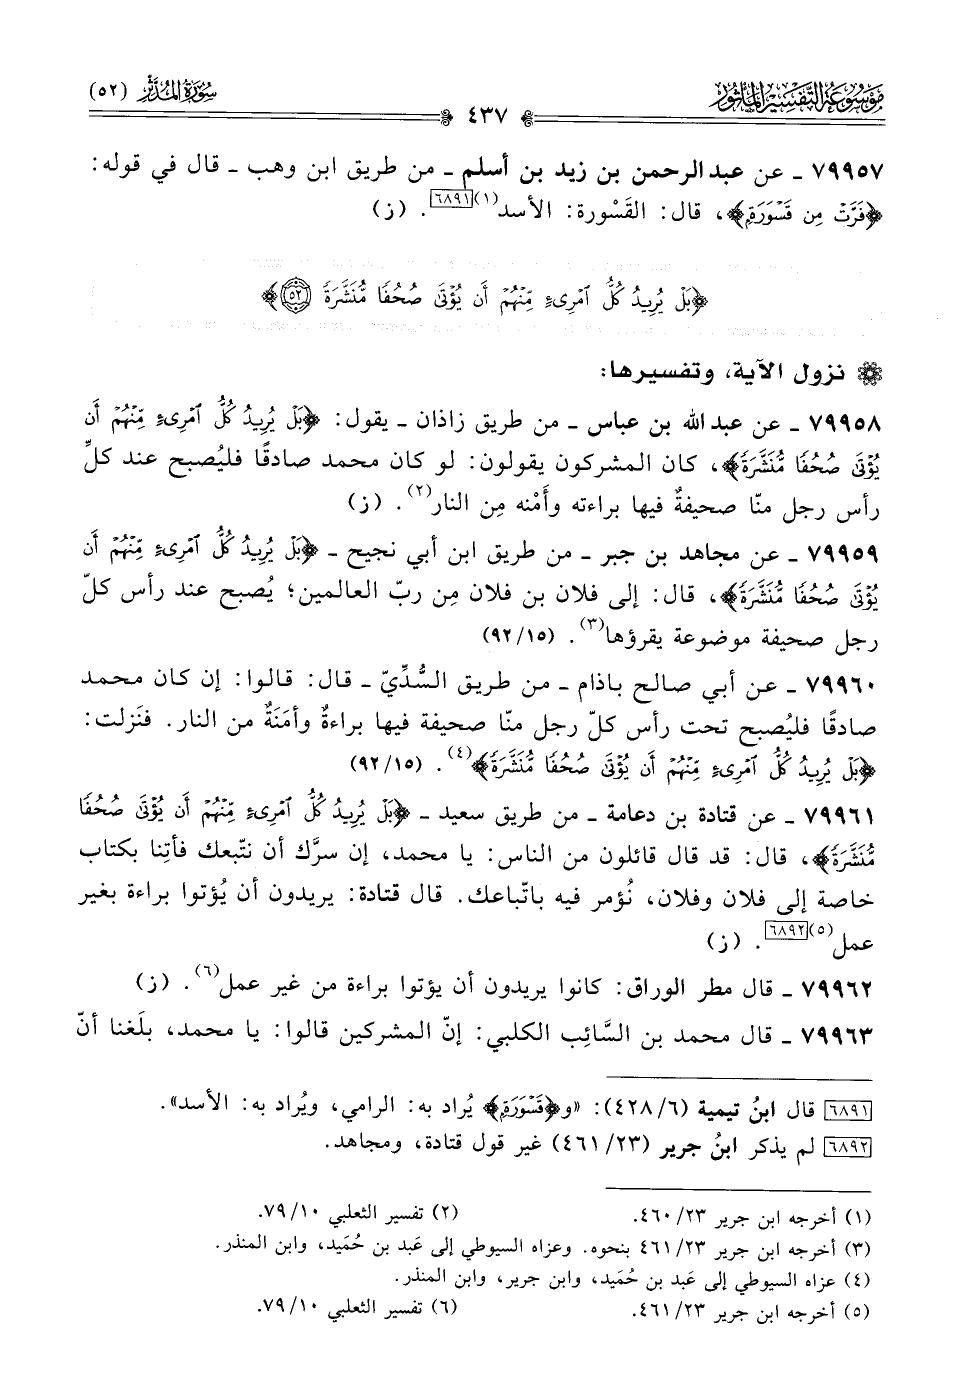 موسوعة التفسير المأثور
سورة المدثر (٥٢)
٤٣٧
٧٩٩٥٧ ـ عن عبد الرحمن بن زيد بن أسلم ـ من طريق ابن وهب ـ قال في قوله:
﴿فَرَّتْ مِن قَسْوَرَةٍۭ﴾، قال: القَسْورة: الأسد(١)[٦٨٩١]. (ز)
﴿بَلْ يُرِيدُ كُلُّ ٱمْرِئٍ مِّنْهُمْ أَن يُؤْتَىٰ صُحُفًا مُّنَشَّرَةً ٥٢﴾
نزول الآية، وتفسيرها:
٧٩٩٥٨ ـ عن عبد الله بن عباس ـ من طريق زاذان ـ يقول: ﴿بَلْ يُرِيدُ كُلُّ ٱمْرِئٍ مِّنْهُمْ أَن
يُؤْتَىٰ صُحُفًا مُّنَشَّرَةً﴾، كان المشركون يقولون: لو كان محمد صادقًا فليُصبح عند كلِّ
رأس رجل منّا صحيفةٌ فيها براءته وأَمْنه مِن النار(٢). (ز)
٧٩٩٥٩ ـ عن مجاهد بن جبر ـ من طريق ابن أبي نجيح ـ ﴿بَلْ يُرِيدُ كُلُّ ٱمْرِئٍ مِّنْهُمْ أَن
يُؤْتَىٰ صُحُفًا مُّنَشَّرَةً﴾، قال: إلى فلان بن فلان مِن ربّ العالمين؛ يُصبح عند رأس كلّ
رجل صحيفة موضوعة يقرؤها(٣). (١٥/٩٢)
٧٩٩٦٠ ـ عن أبي صالح باذام ـ من طريق السُّدِّيّ ـ قال: قالوا: إن كان محمد
صادقًا فليُصبح تحت رأس كلّ رجل منّا صحيفة فيها براءةٌ وأمَنَةٌ من النار. فنَزلت:
﴿بَلْ يُرِيدُ كُلُّ ٱمْرِئٍ مِّنْهُمْ أَن يُؤْتَىٰ صُحُفًا مُّنَشَّرَةً﴾(٤). (١٥/٩٢)
٧٩٩٦١ ـ عن قتادة بن دعامة ـ من طريق سعيد ـ ﴿بَلْ يُرِيدُ كُلُّ ٱمْرِئٍ مِّنْهُمْ أَن يُؤْتَىٰ صُحُفًا
مُّنَشَّرَةً﴾، قال: قد قال قائلون من الناس: يا محمد، إن سرَّك أن نتّبعك فأتِنا بكتاب
خاصة إلى فلان وفلان، نُؤمر فيه باتّباعك. قال قتادة: يريدون أن يُؤتوا براءة بغير
عمل(٥)[٦٨٩٢]. (ز)
٧٩٩٦٢ ـ قال مطر الوراق: كانوا يريدون أن يؤتوا براءة من غير عمل(٦). (ز)
٧٩٩٦٣ ـ قال محمد بن السَّائِب الكلبي: إنّ المشركين قالوا: يا محمد، بلَغنا أنّ
[٦٨٩١] قال ابنُ تيمية (٦/٤٢٨): «و﴿قَسْوَرَةٍۭ﴾ يُراد به: الرامي، ويُراد به: الأسد».
[٦٨٩٢] لم يذكر ابنُ جرير (٢٣/٤٦١) غير قول قتادة، ومجاهد.
(١) أخرجه ابن جرير ٢٣/٤٦٠.
(٢) تفسير الثعلبي ١٠/٧٩.
(٣) أخرجه ابن جرير ٢٣/٤٦١ بنحوه. وعزاه السيوطي إلى عَبد بن حُمَيد، وابن المنذر.
(٤) عزاه السيوطي إلى عَبد بن حُمَيد، وابن جرير، وابن المنذر.
(٥) أخرجه ابن جرير ٢٣/٤٦١.
(٦) تفسير الثعلبي ١٠/٧٩.